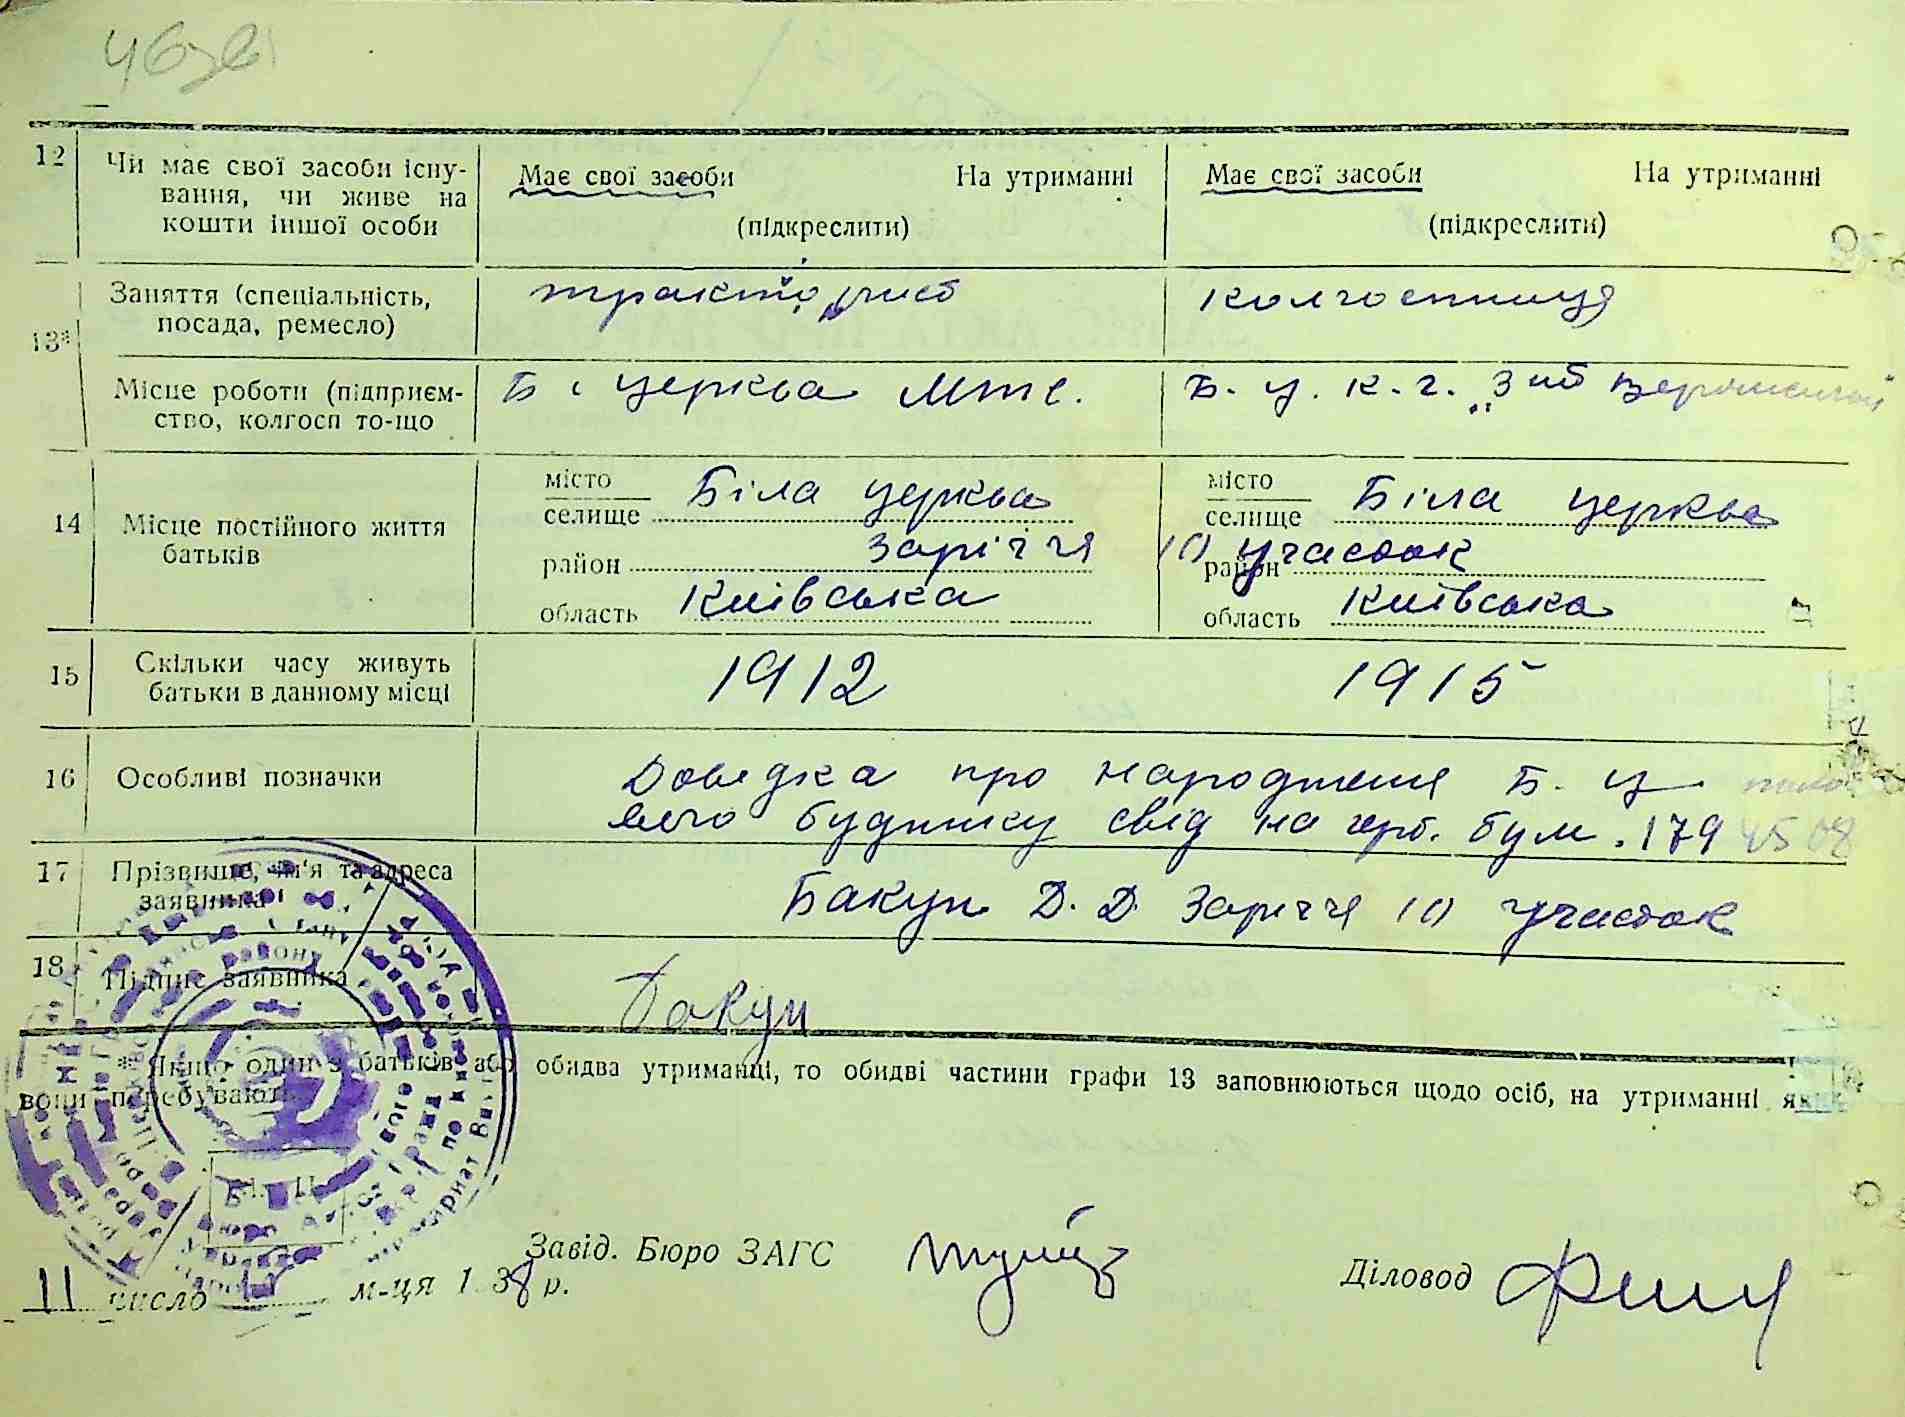 12 Чи має свої засоби існу-
вання, чи живе на
кошти іншої особи
Має свої засоби На утриманні
(підкреслити)
Має свої засоби На утриманні
(підкреслити)
13*
Заняття (спеціальність,
посада, ремесло)
тракторист
колгоспниця
Місце роботи (підприєм-
ство, колгосп то-що
Б. церква мтс.
Б. ц. к. г.
14 Місце постійного життя
батьків
місто
селище Біла церква
район Заріччя
область Київська
місто
селище Біла церква
10 участок
район
область Київська
15 Скільки часу живуть
батьки в данному місці
1912
1915
16 Особливі позначки
Довідка про народження Б. ц.
будинку свід на герб. бум. 1794508
17 Прізвище, ім'я та адреса
заявника
Бакун Д. Д. Заріччя 10 участок
18 Підпис заявника
Бакун
* Якщо один з батьків або обидва утриманці, то обидві частини графи 13 заповнюються щодо осіб, на утриманні яких
вони перебувають.
11 число м-ця 1938 р.
Завід. Бюро ЗАГС
Діловод